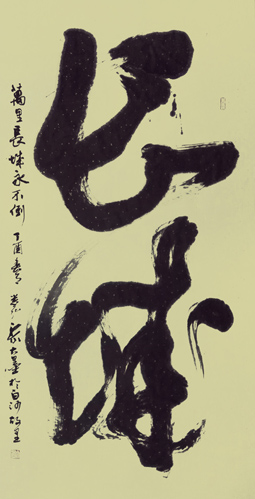 長城
萬里長城永不倒
丁酉春
大墨於白沙